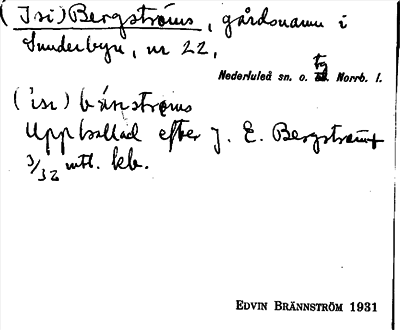 (Isi) Bergströms, gårdsnamn i
Sunderbyn, nr 22,
Nederluleå sn. o. tg. Norrb. l.
('isi) bárstrøms
Uppkallad efter J. E. Bergström
3/32 mtl. kb.
EDVIN BRÄNNSTRÖM 1931